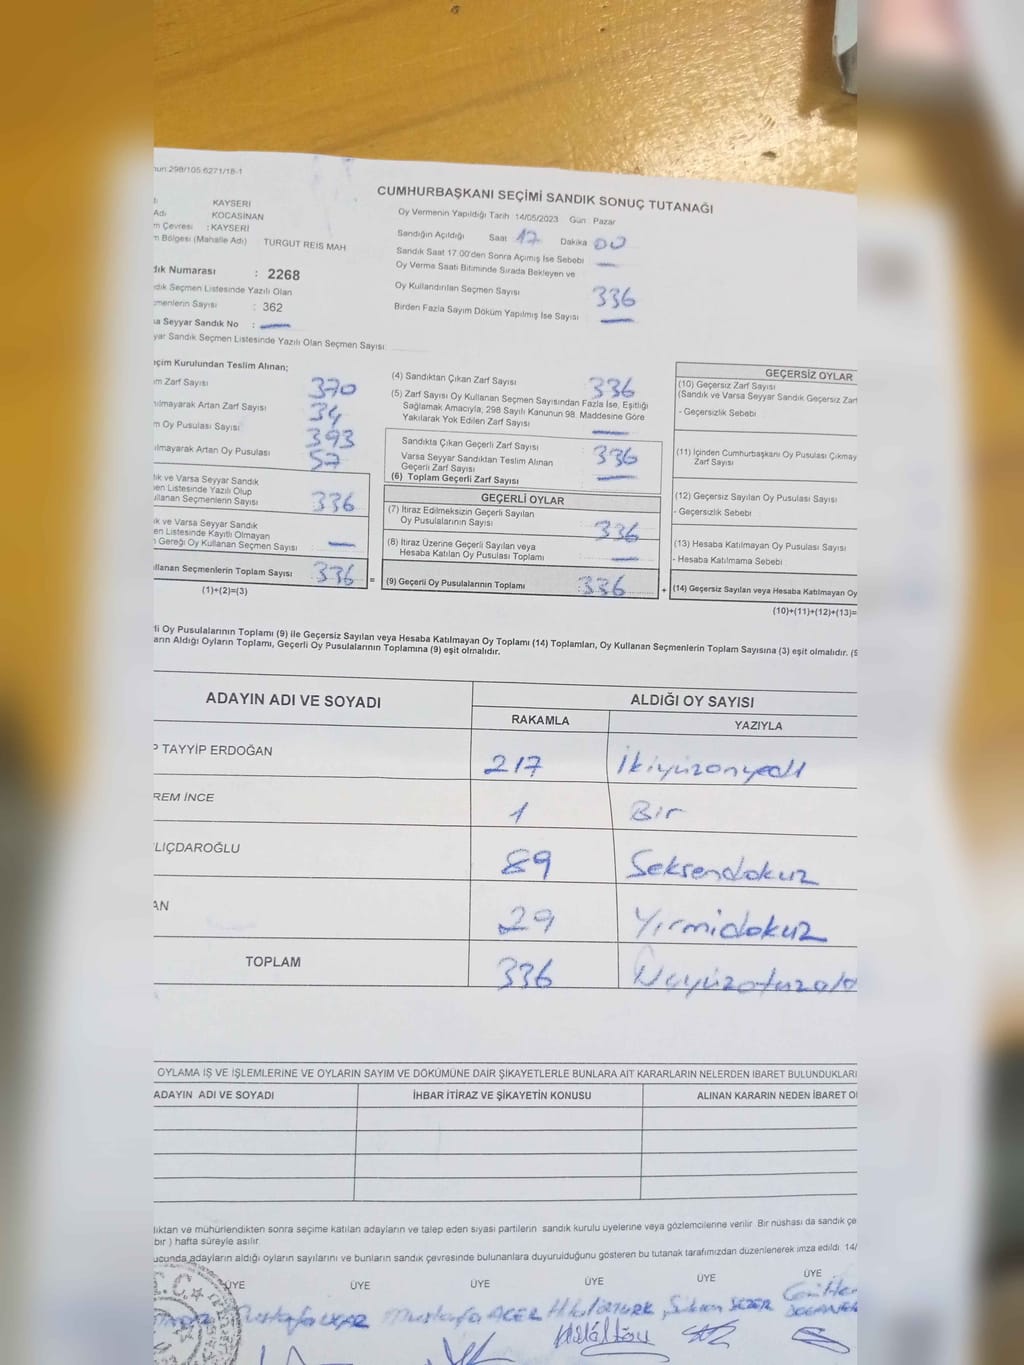 298/105.6271/18-1
CUMHURBAŞKANI SEÇİMİ SANDIK SONUÇ TUTANAĞI
KAYSERİ
KOCASİNAN
Çevresi : KAYSERİ
Bölgesi (Mahalle Adı) TURGUT REİS MAH
Numarası : 2268
Seçmen Listesinde Yazılı Olan
Sayısı : 362
Seyyar Sandık No :
Sandık Seçmen Listesinde Yazılı Olan Seçmen Sayısı:
Oy Vermenin Yapıldığı Tarih 14/05/2023 Gün Pazar
Sandığın Açıldığı Saat 17 Dakika 00
Sandık Saat 17.00'den Sonra Açımış İse Sebebi
Oy Verme Saati Bitiminde Sırada Bekleyen ve
Oy Kullandırılan Seçmen Sayısı 336
Birden Fazla Sayım Döküm Yapılmış İse Sayısı
Kurulundan Teslim Alınan;
Zarf Sayısı 370
Artan Zarf Sayısı 34
Oy Pusulası Sayısı 393
Artan Oy Pusulası 57
ve Varsa Seyyar Sandık
Listesinde Yazılı Olup
Seçmenlerin Sayısı 336
ve Varsa Seyyar Sandık
Listesinde Kayıtlı Olmayan
Gereği Oy Kullanan Seçmen Sayısı
Seçmenlerin Toplam Sayısı 336 =
(1)+(2)=(3)
(4) Sandıktan Çıkan Zarf Sayısı 336
(5) Zarf Sayısı Oy Kullanan Seçmen Sayısından Fazla İse, Eşitliği
Sağlamak Amacıyla, 298 Sayılı Kanunun 98. Maddesine Göre
Yakılarak Yok Edilen Zarf Sayısı
Sandıkta Çıkan Geçerli Zarf Sayısı 336
Varsa Seyyar Sandıktan Teslim Alınan
Geçerli Zarf Sayısı
(6) Toplam Geçerli Zarf Sayısı
GEÇERLİ OYLAR
(7) İtiraz Edilmeksizin Geçerli Sayılan
Oy Pusulalarının Sayısı 336
(8) İtiraz Üzerine Geçerli Sayılan veya
Hesaba Katılan Oy Pusulası Toplamı
(9) Geçerli Oy Pusulalarının Toplamı : 336 +
GEÇERSİZ OYLAR
(10) Geçersiz Zarf Sayısı
(Sandık ve Varsa Seyyar Sandık Geçersiz
- Geçersizlik Sebebi
(11) İçinden Cumhurbaşkanı Oy Pusulası
Zarf Sayısı
(12) Geçersiz Sayılan Oy Pusulası Sayısı
- Geçersizlik Sebebi
(13) Hesaba Katılmayan Oy Pusulası Sayısı
- Hesaba Katılmama Sebebi
(14) Geçersiz Sayılan veya Hesaba Katılmayan Oy
(10)+(11)+(12)+(13)=
Oy Pusulalarının Toplamı (9) ile Geçersiz Sayılan veya Hesaba Katılmayan Oy Toplamı (14) Toplamları, Oy Kullanan Seçmenlerin Toplam Sayısına (3) eşit olmalıdır.
Aldığı Oyların Toplamı, Geçerli Oy Pusulalarının Toplamına (9) eşit olmalıdır.
ADAYIN ADI VE SOYADI ALDIĞI OY SAYISI
RAKAMLA YAZIYLA
TAYYİP ERDOĞAN 217 İkiyüzonyedi
REM İNCE 1 Bir
LIÇDAROĞLU 89 Seksendokuz
AN 29 Yirmidokuz
TOPLAM 336
OYLAMA İŞ VE İŞLEMLERİNE VE OYLARIN SAYIM VE DÖKÜMÜNE DAİR ŞİKAYETLERLE BUNLARA AİT KARARLARIN NELERDEN İBARET BULUNDUKLARI
ADAYIN ADI VE SOYADI İHBAR İTİRAZ VE ŞİKAYETİN KONUSU ALINAN KARARIN NEDEN İBARET
ve mühürlendikten sonra seçime katılan adayların ve talep eden siyasi partilerin sandık kurulu üyelerine veya gözlemcilerine verilir. Bir nüshası da sandık
bir ) hafta süreyle asılır.
adayların aldığı oyların sayılarını ve bunların sandık çevresinde bulunanlara duyurulduğunu gösteren bu tutanak tarafımızdan düzenlenerek imza edildi. 14/
ÜYE ÜYE ÜYE ÜYE ÜYE ÜYE
Mustafa UÇAR Mustafa ACER H.ÖZTÜRK Şükran SEZER
T.C.